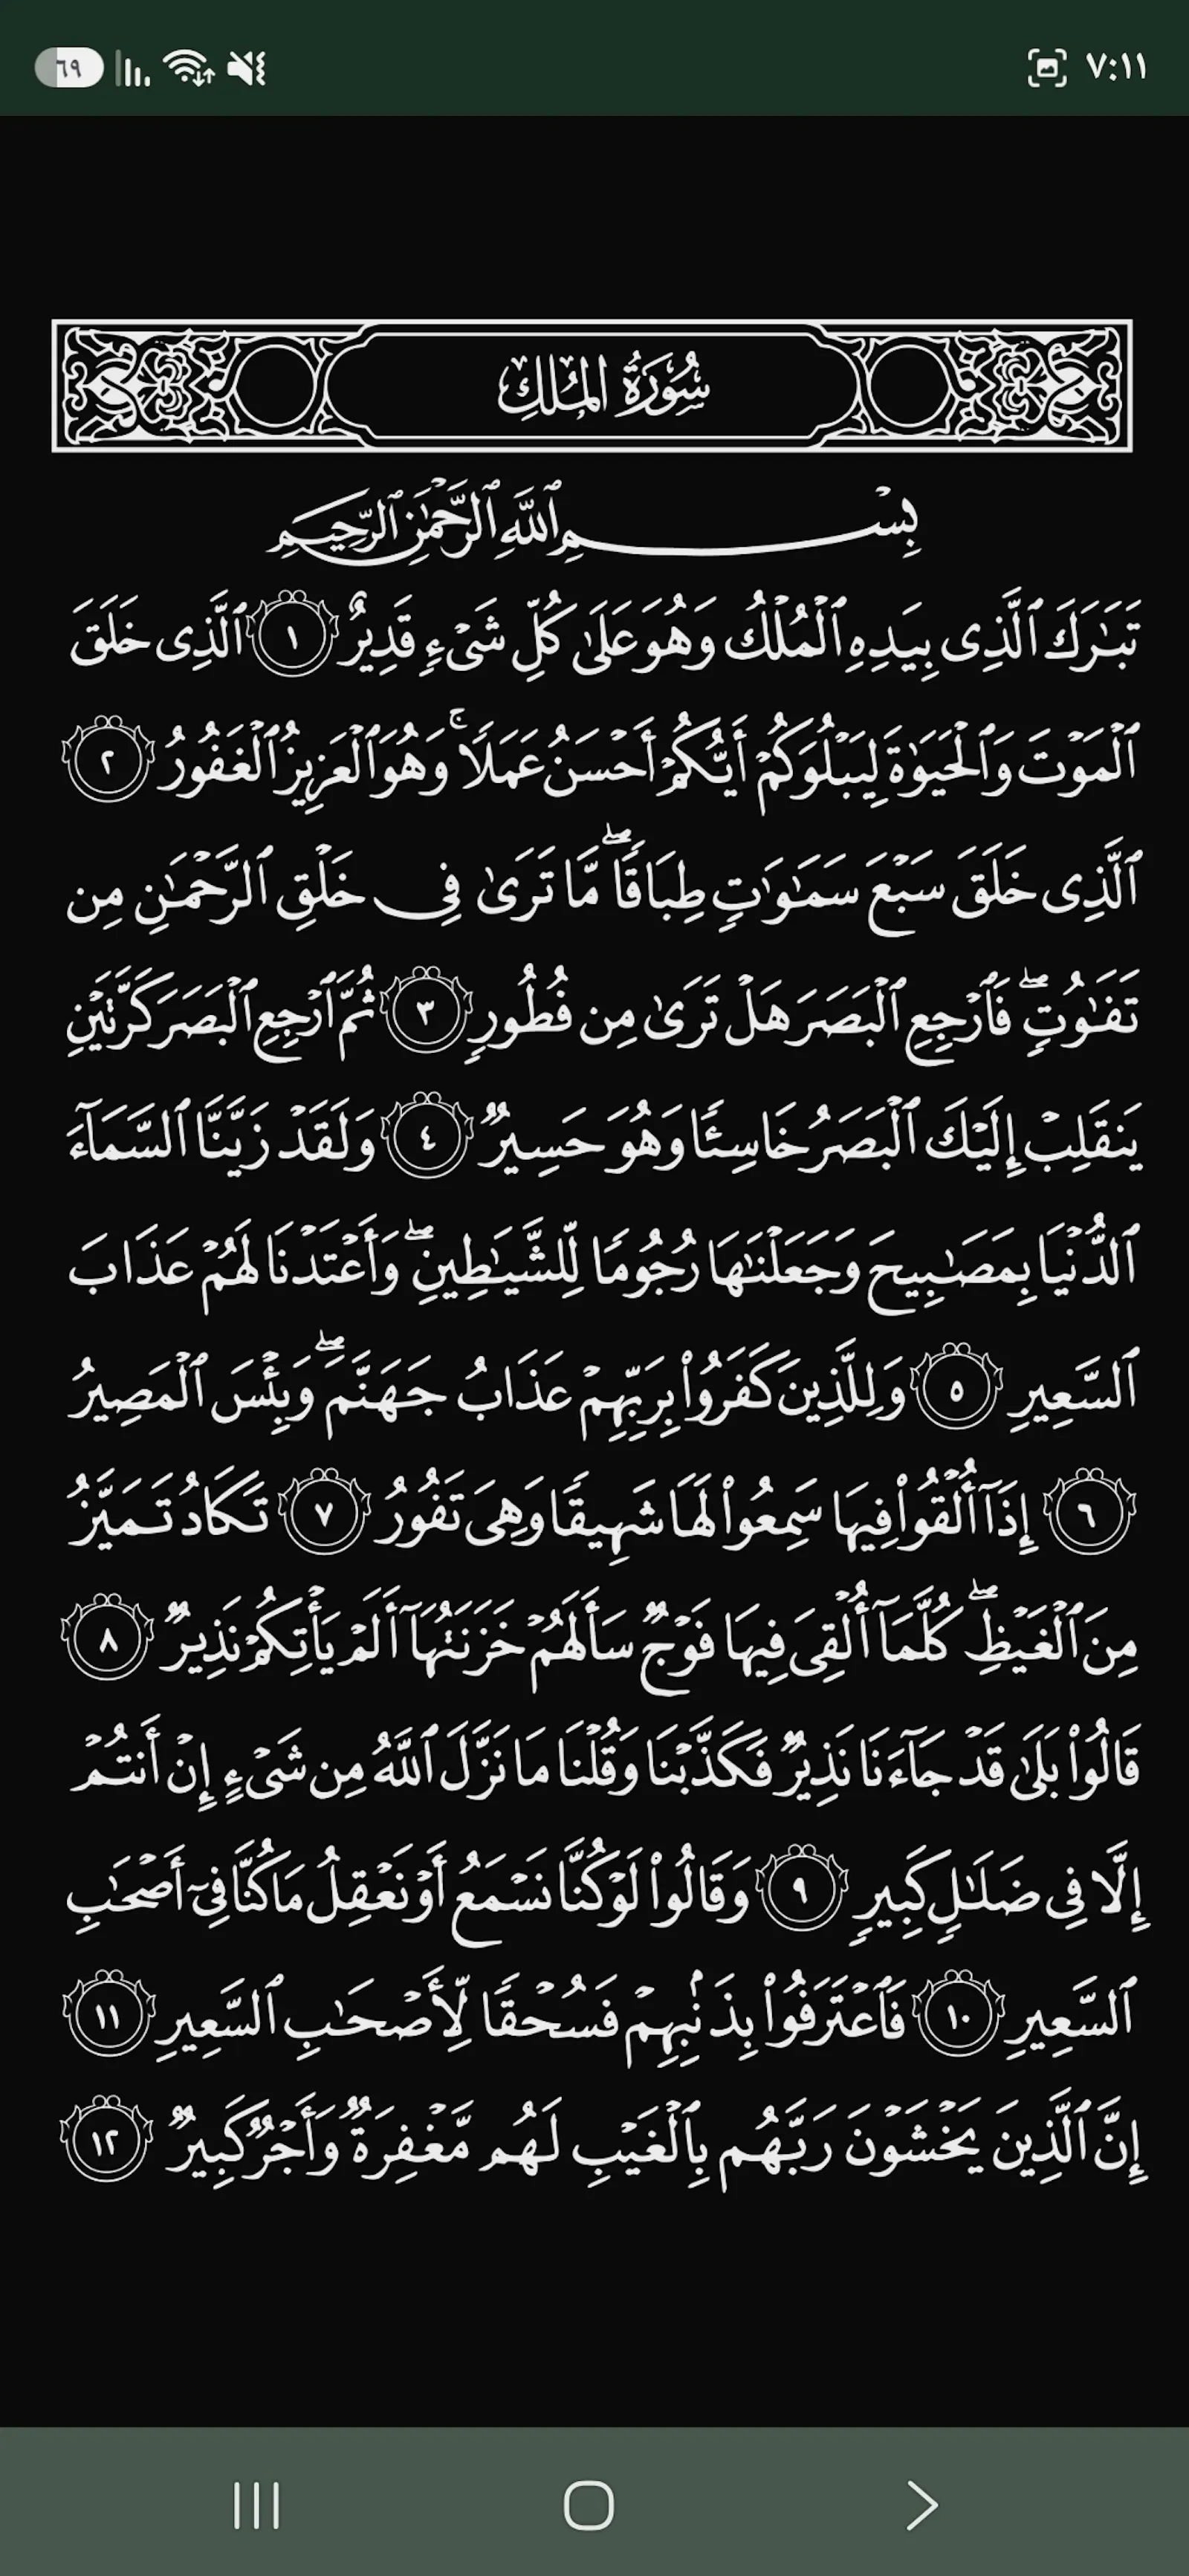 ٧:١١
٦٩
سُورَةُ المُلكِ
بِسْمِ ٱللَّهِ ٱلرَّحْمَٰنِ ٱلرَّحِيمِ
تَبَٰرَكَ ٱلَّذِى بِيَدِهِ ٱلْمُلْكُ وَهُوَ عَلَىٰ كُلِّ شَىْءٍ قَدِيرٌ ١ ٱلَّذِى خَلَقَ
ٱلْمَوْتَ وَٱلْحَيَوٰةَ لِيَبْلُوَكُمْ أَيُّكُمْ أَحْسَنُ عَمَلًا ۚ وَهُوَ ٱلْعَزِيزُ ٱلْغَفُورُ ٢
ٱلَّذِى خَلَقَ سَبْعَ سَمَٰوَٰتٍ طِبَاقًا ۖ مَّا تَرَىٰ فِى خَلْقِ ٱلرَّحْمَٰنِ مِن
تَفَٰوُتٍ ۖ فَٱرْجِعِ ٱلْبَصَرَ هَلْ تَرَىٰ مِن فُطُورٍ ٣ ثُمَّ ٱرْجِعِ ٱلْبَصَرَ كَرَّتَيْنِ
يَنقَلِبْ إِلَيْكَ ٱلْبَصَرُ خَاسِئًا وَهُوَ حَسِيرٌ ٤ وَلَقَدْ زَيَّنَّا ٱلسَّمَآءَ
ٱلدُّنْيَا بِمَصَٰبِيحَ وَجَعَلْنَٰهَا رُجُومًا لِّلشَّيَٰطِينِ ۖ وَأَعْتَدْنَا لَهُمْ عَذَابَ
ٱلسَّعِيرِ ٥ وَلِلَّذِينَ كَفَرُوا۟ بِرَبِّهِمْ عَذَابُ جَهَنَّمَ ۖ وَبِئْسَ ٱلْمَصِيرُ
٦ إِذَآ أُلْقُوا۟ فِيهَا سَمِعُوا۟ لَهَا شَهِيقًا وَهِىَ تَفُورُ ٧ تَكَادُ تَمَيَّزُ
مِنَ ٱلْغَيْظِ ۖ كُلَّمَآ أُلْقِىَ فِيهَا فَوْجٌ سَأَلَهُمْ خَزَنَتُهَآ أَلَمْ يَأْتِكُمْ نَذِيرٌ ٨
قَالُوا۟ بَلَىٰ قَدْ جَآءَنَا نَذِيرٌ فَكَذَّبْنَا وَقُلْنَا مَا نَزَّلَ ٱللَّهُ مِن شَىْءٍ إِنْ أَنتُمْ
إِلَّا فِى ضَلَٰلٍ كَبِيرٍ ٩ وَقَالُوا۟ لَوْ كُنَّا نَسْمَعُ أَوْ نَعْقِلُ مَا كُنَّا فِىٓ أَصْحَٰبِ
ٱلسَّعِيرِ ١٠ فَٱعْتَرَفُوا۟ بِذَنۢبِهِمْ فَسُحْقًا لِّأَصْحَٰبِ ٱلسَّعِيرِ ١١
إِنَّ ٱلَّذِينَ يَخْشَوْنَ رَبَّهُم بِٱلْغَيْبِ لَهُم مَّغْفِرَةٌ وَأَجْرٌ كَبِيرٌ ١٢